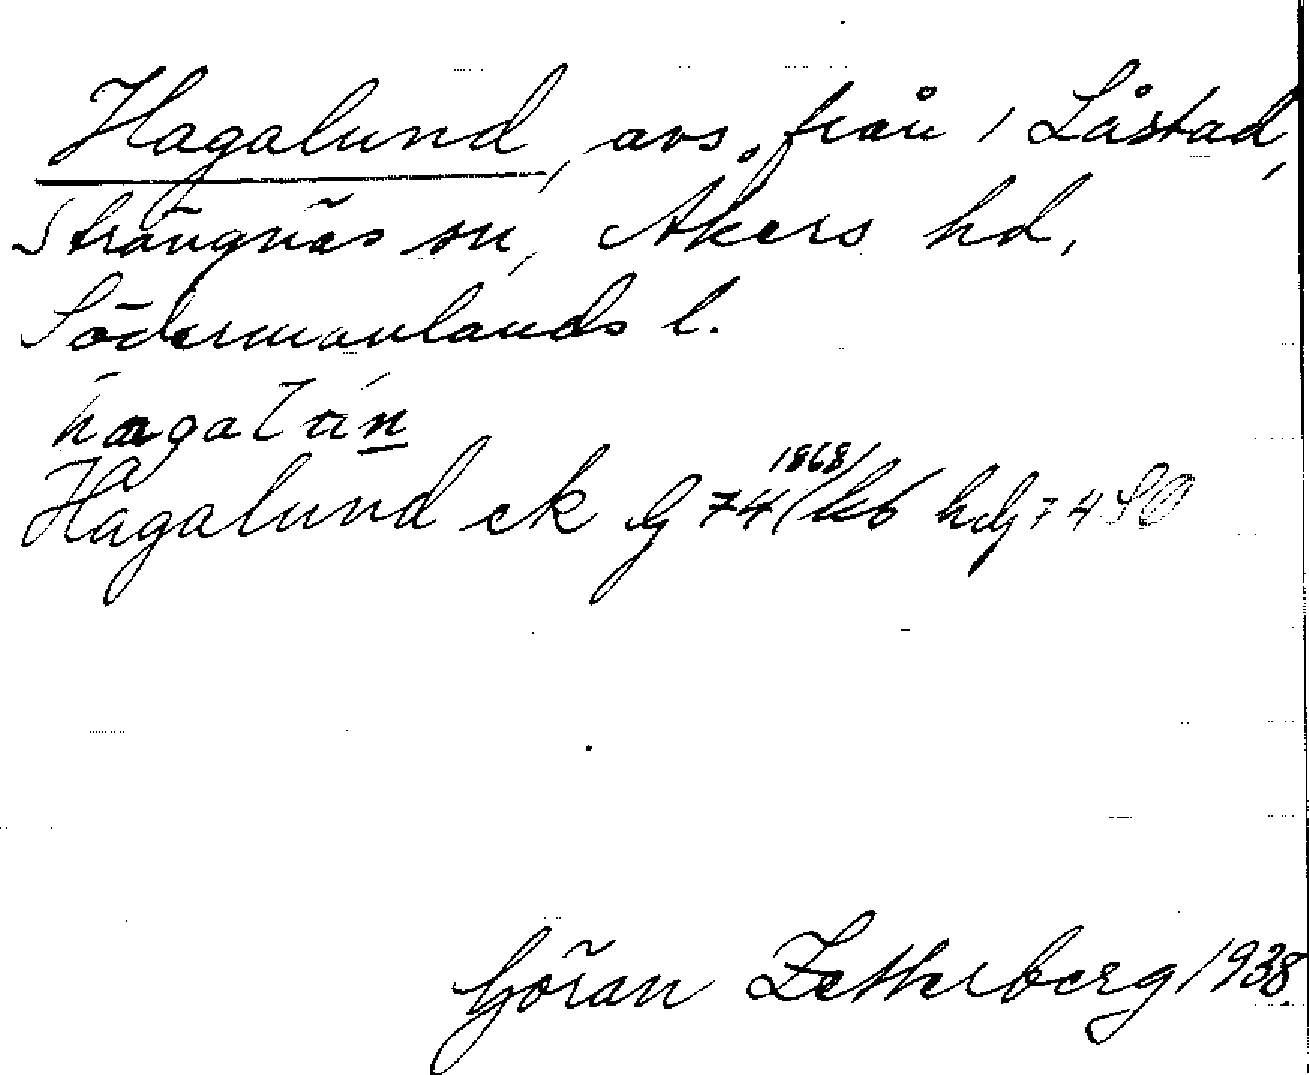 Hagalund, avs. från 1 Låstad,
Strängnäs sn, Åkers hd,
Södermanlands l.
Hagalund ek G 74 1868/ kb hdg 74 SO
Göran Zetterberg 1938